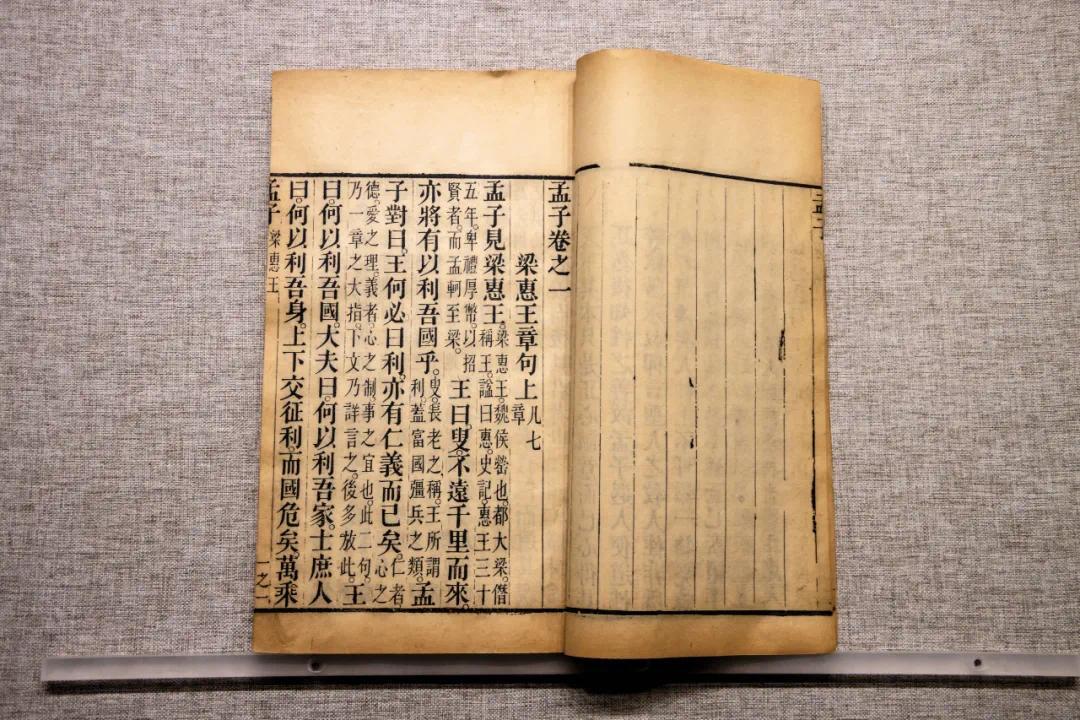 孟子
孟子卷之一
梁惠王章句上凡七章
孟子見梁惠王。梁惠王。魏侯罃也。都大梁。僭稱王。諡曰惠。史記。惠王三十
五年。卑禮厚幣。以招賢者。而孟軻至梁。王曰。叟。不遠千里而來。
亦將有以利吾國乎。叟。長老之稱。王所謂利。蓋富國彊兵之類。孟
子對曰。王何必曰利。亦有仁義而已矣。仁者。心之
德。愛之理。義者。心之制。事之宜也。此二句。乃一章之大指。下文乃詳言之。後多放此。王
曰。何以利吾國。大夫曰。何以利吾家。士庶人
曰。何以利吾身。上下交征利。而國危矣。萬乘
孟子 梁惠王 一之一